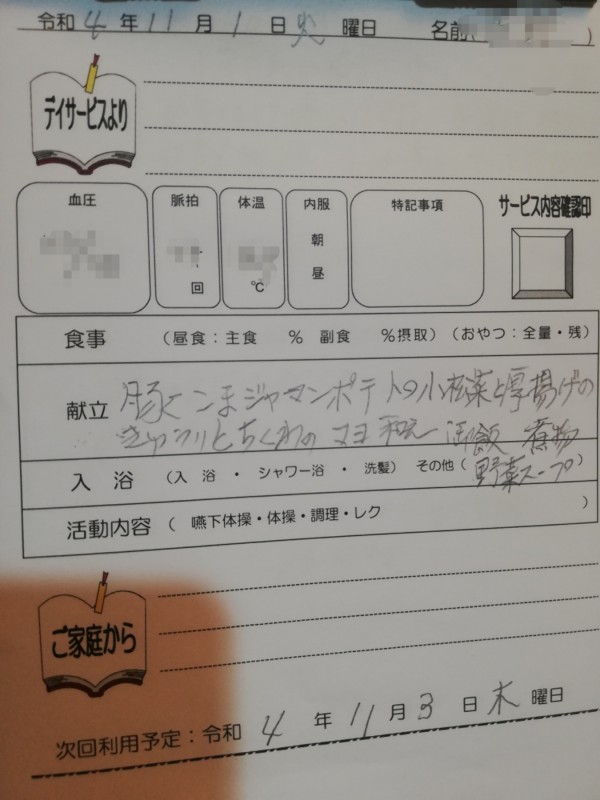 令和 4 年 11 月 1 日 火 曜日 名前( )
デイサービスより
血圧 脈拍 体温 内服 特記事項 サービス内容確認印
朝
昼
回 ℃
食事 (昼食:主食 % 副食 %摂取)(おやつ:全量・残)
献立 豚こまジャーマンポテト 小松菜と厚揚げの
きゅうりとちくわのマヨ和え ご飯 煮物
入浴 (入浴・シャワー浴・洗髪) その他( 野菜スープ )
活動内容 ( 嚥下体操・体操・調理・レク )
ご家庭から
次回利用予定:令和 4 年 11 月 3 日 木 曜日